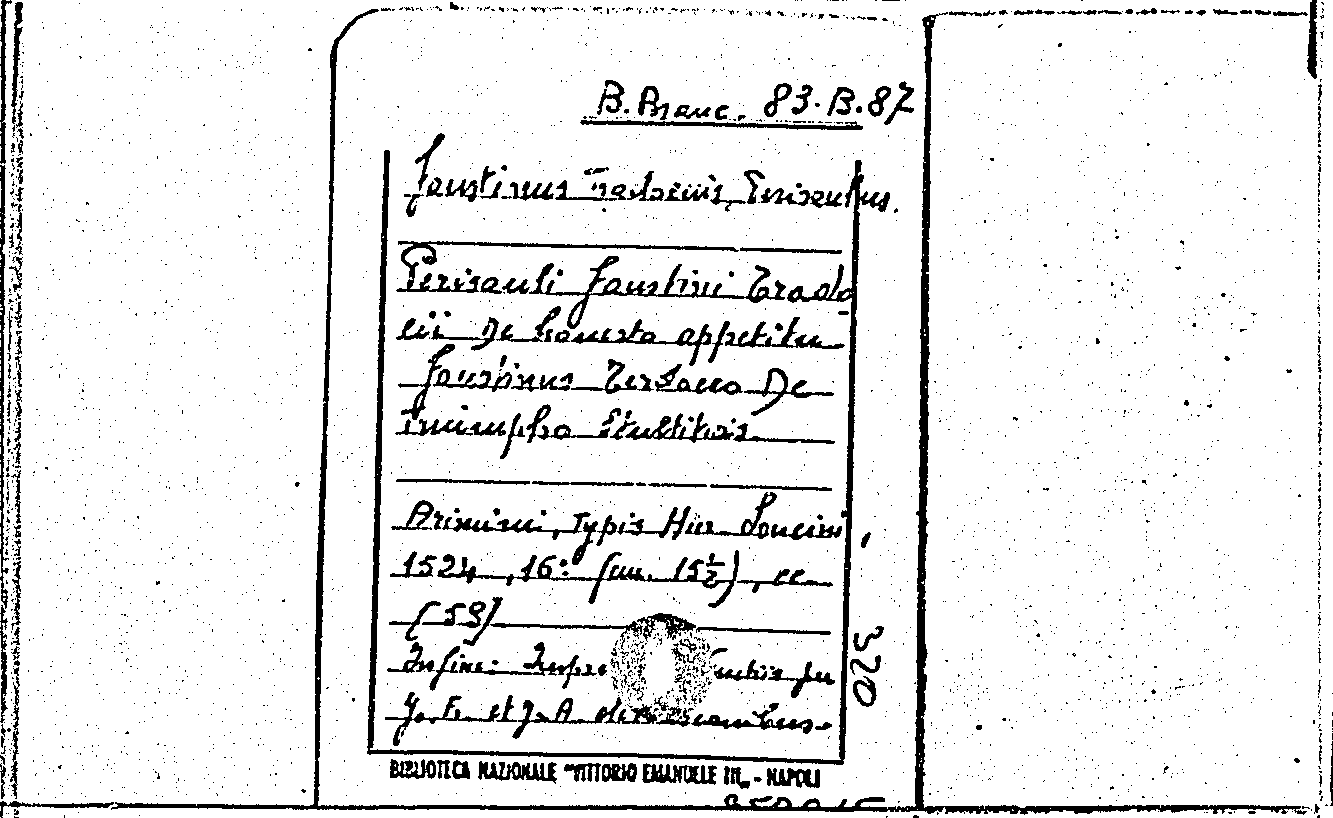 B. Branc. 83. B. 87
Faustinus Perisaulus.
Perisauli Faustini Trado
cii De honesto appetitu
Faustinus Terdoceo De
triumpho Stultitiae
Arimini, typis Hier Soncini,
1524, 16° (cm. 15½), cc
[59]
In fine: Venetiis per
J. F. et J. A. de
320
BIBLIOTECA NAZIONALE "VITTORIO EMANUELE III„ - NAPOLI